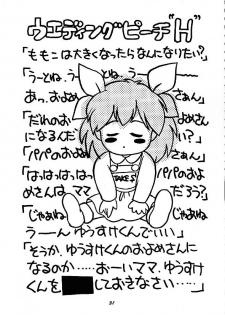 ウエディングピーチ"H"
「ももこは大きくなったらなんになりたい?」
「うーとね、う
あっ、およめ
さぁん」
「だれのおよ
めさん
になるんだ
い?」
「パパのおよ
めさぁん」
「はっはっはっはっ
めさんは ママ
だろう?」
「じゃあねぇ
TAKE S
うーーん ゆうすけくんのおよめさぁん」
「そうか、ゆうすけくんのおよめさんに
なるのか……おーいママ、ゆうすけ
くんを
しておきなさい……」
31